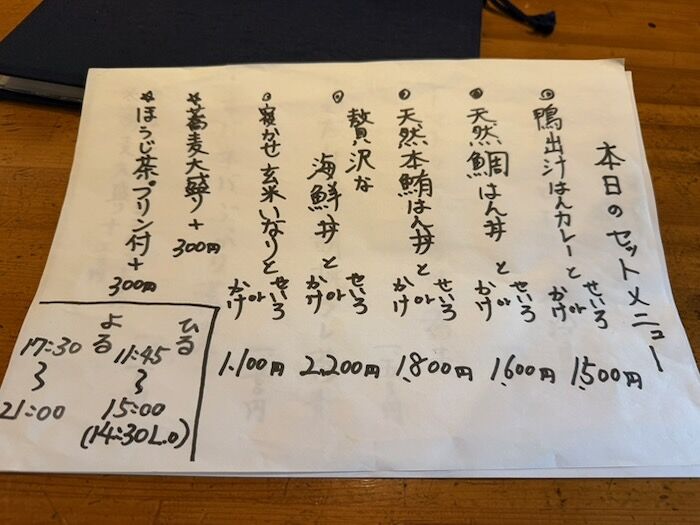 本日のセットメニュー
◎鴨出汁はんカレーと せいろ or かけ 1,500円
◎天然鯛はん丼 と せいろ or かけ 1,600円
◎天然本鮪はん丼 と せいろ or かけ 1,800円
◎贅沢な
海鮮丼 と せいろ or かけ 2,200円
◦寝かせ玄米いなりと せいろ or かけ 1,100円
☆蕎麦大盛り+300円
☆ほうじ茶プリン付+300円
ひる
11:45
〜
15:00
(14:30L.O)
よる
17:30
〜
21:00